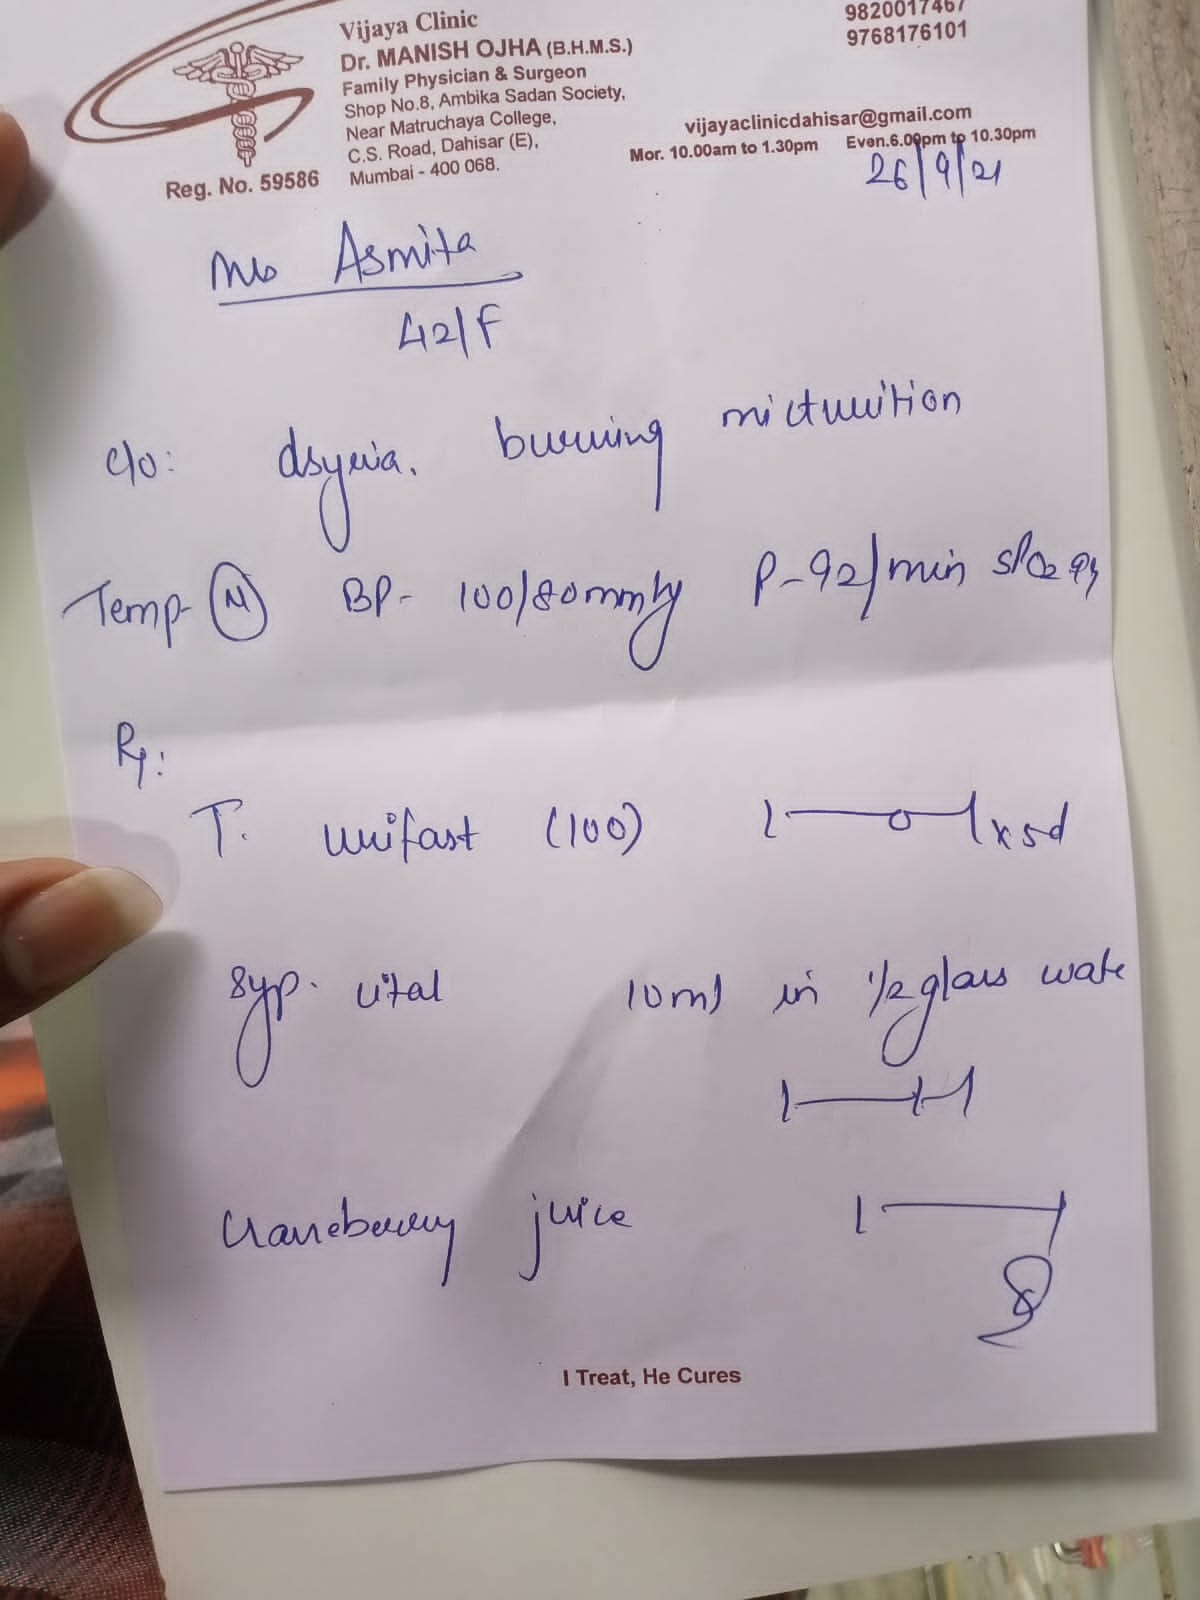 Vijaya Clinic
Dr. MANISH OJHA (B.H.M.S.)
Family Physician & Surgeon
Shop No.8, Ambika Sadan Society,
Near Matruchaya College,
C.S. Road, Dahisar (E),
Mumbai - 400 068.
Reg. No. 59586
9820017467
9768176101
vijayaclinicdahisar@gmail.com
Mor. 10.00am to 1.30pm Even.6.00pm to 10.30pm
26/9/21
Asmita
42/F
c/o: dsyuria. burning micturition
Temp- N BP- 100/80mmHg P-92/min SPO2
Rx:
T. unifast (100) 1—0—1 x5d
Syp. vital 10ml in 1/2 glass wate
1—1—1
juice 1—1
I Treat, He Cures